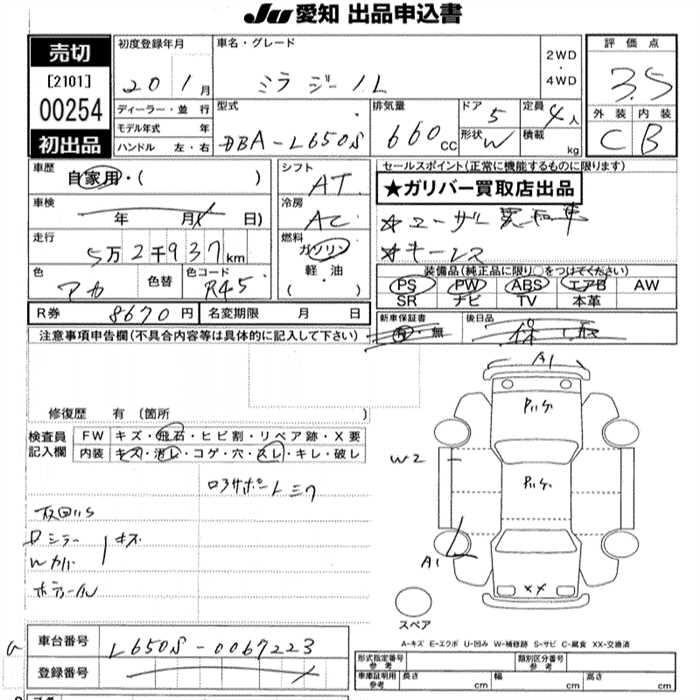 JU 愛知 出品申込書
売切
[2101]
00254
初出品
初度登録年月
20年 1月
ディーラー・並 行
モデル年式 年
ハンドル 左・右
車名・グレード
ミラ ジーノL
2WD
・
4WD
型式
DBA-L650S
排気量
660cc
ドア 5
形状 W
定員 4人
積載 kg
評価点
3.5
外装 内装
C B
車歴
自家用・( )
車検
年 月( 日)
走行
5万2千937km
色
アカ
色替
色コード
R45
シフト
AT
冷房
AC
燃料
ガソリン
軽・油
・( )
セールスポイント(正常に機能するものに限ります)
★ガリバー買取店出品
☆ユーザー買取車
☆キーレス
装備品(純正品に限り○をつけてください)
PS PW ABS エアB AW
SR ナビ TV 本革
R券 8670円
名変期限 月 日
新車保証書
有・無
後日品
注意事項申告欄(不具合内容等は具体的に記入して下さい)
修復歴 有 (箇所 )
検査員
記入欄
FW キズ・飛石・ヒビ割・リペア跡・X要
内装 キズ・汚レ・コゲ・穴・スレ・キレ・破レ
A1
W2
A1
XX
スペア
A-キズ E-エクボ U-凹み W-補修跡 S-サビ C-腐食 XX-交換済
車台番号 L650S-0067223
登録番号
形式指定番号
参考
類別区分番号
参考
車庫証明用
参考
長さ cm
幅 cm
高さ cm